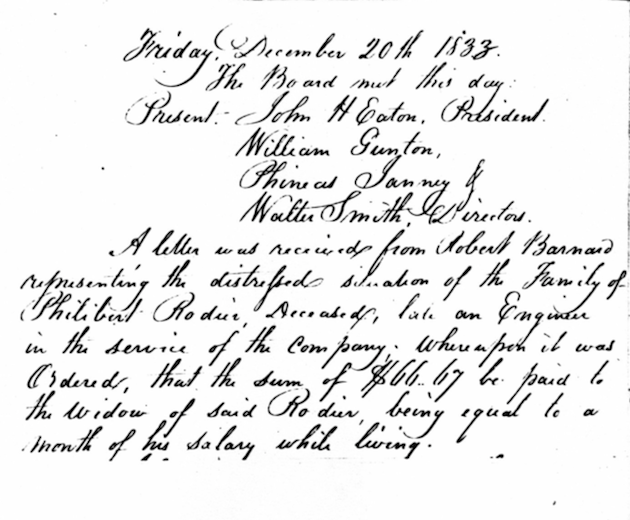 Friday, December 20th 1833.
The Board met this day:
Present. John H Eaton, President.
William Gunton,
Phineas Janney &
Walter Smith, Directors.
A letter was received from Robert Barnard
representing the distressed situation of the Family of
Philibert Rodier, Deceased, late an Engineer
in the service of the company; whereupon it was
Ordered, that the sum of $66..67 be paid to
the widow of said Rodier, being equal to a
month of his salary while living.